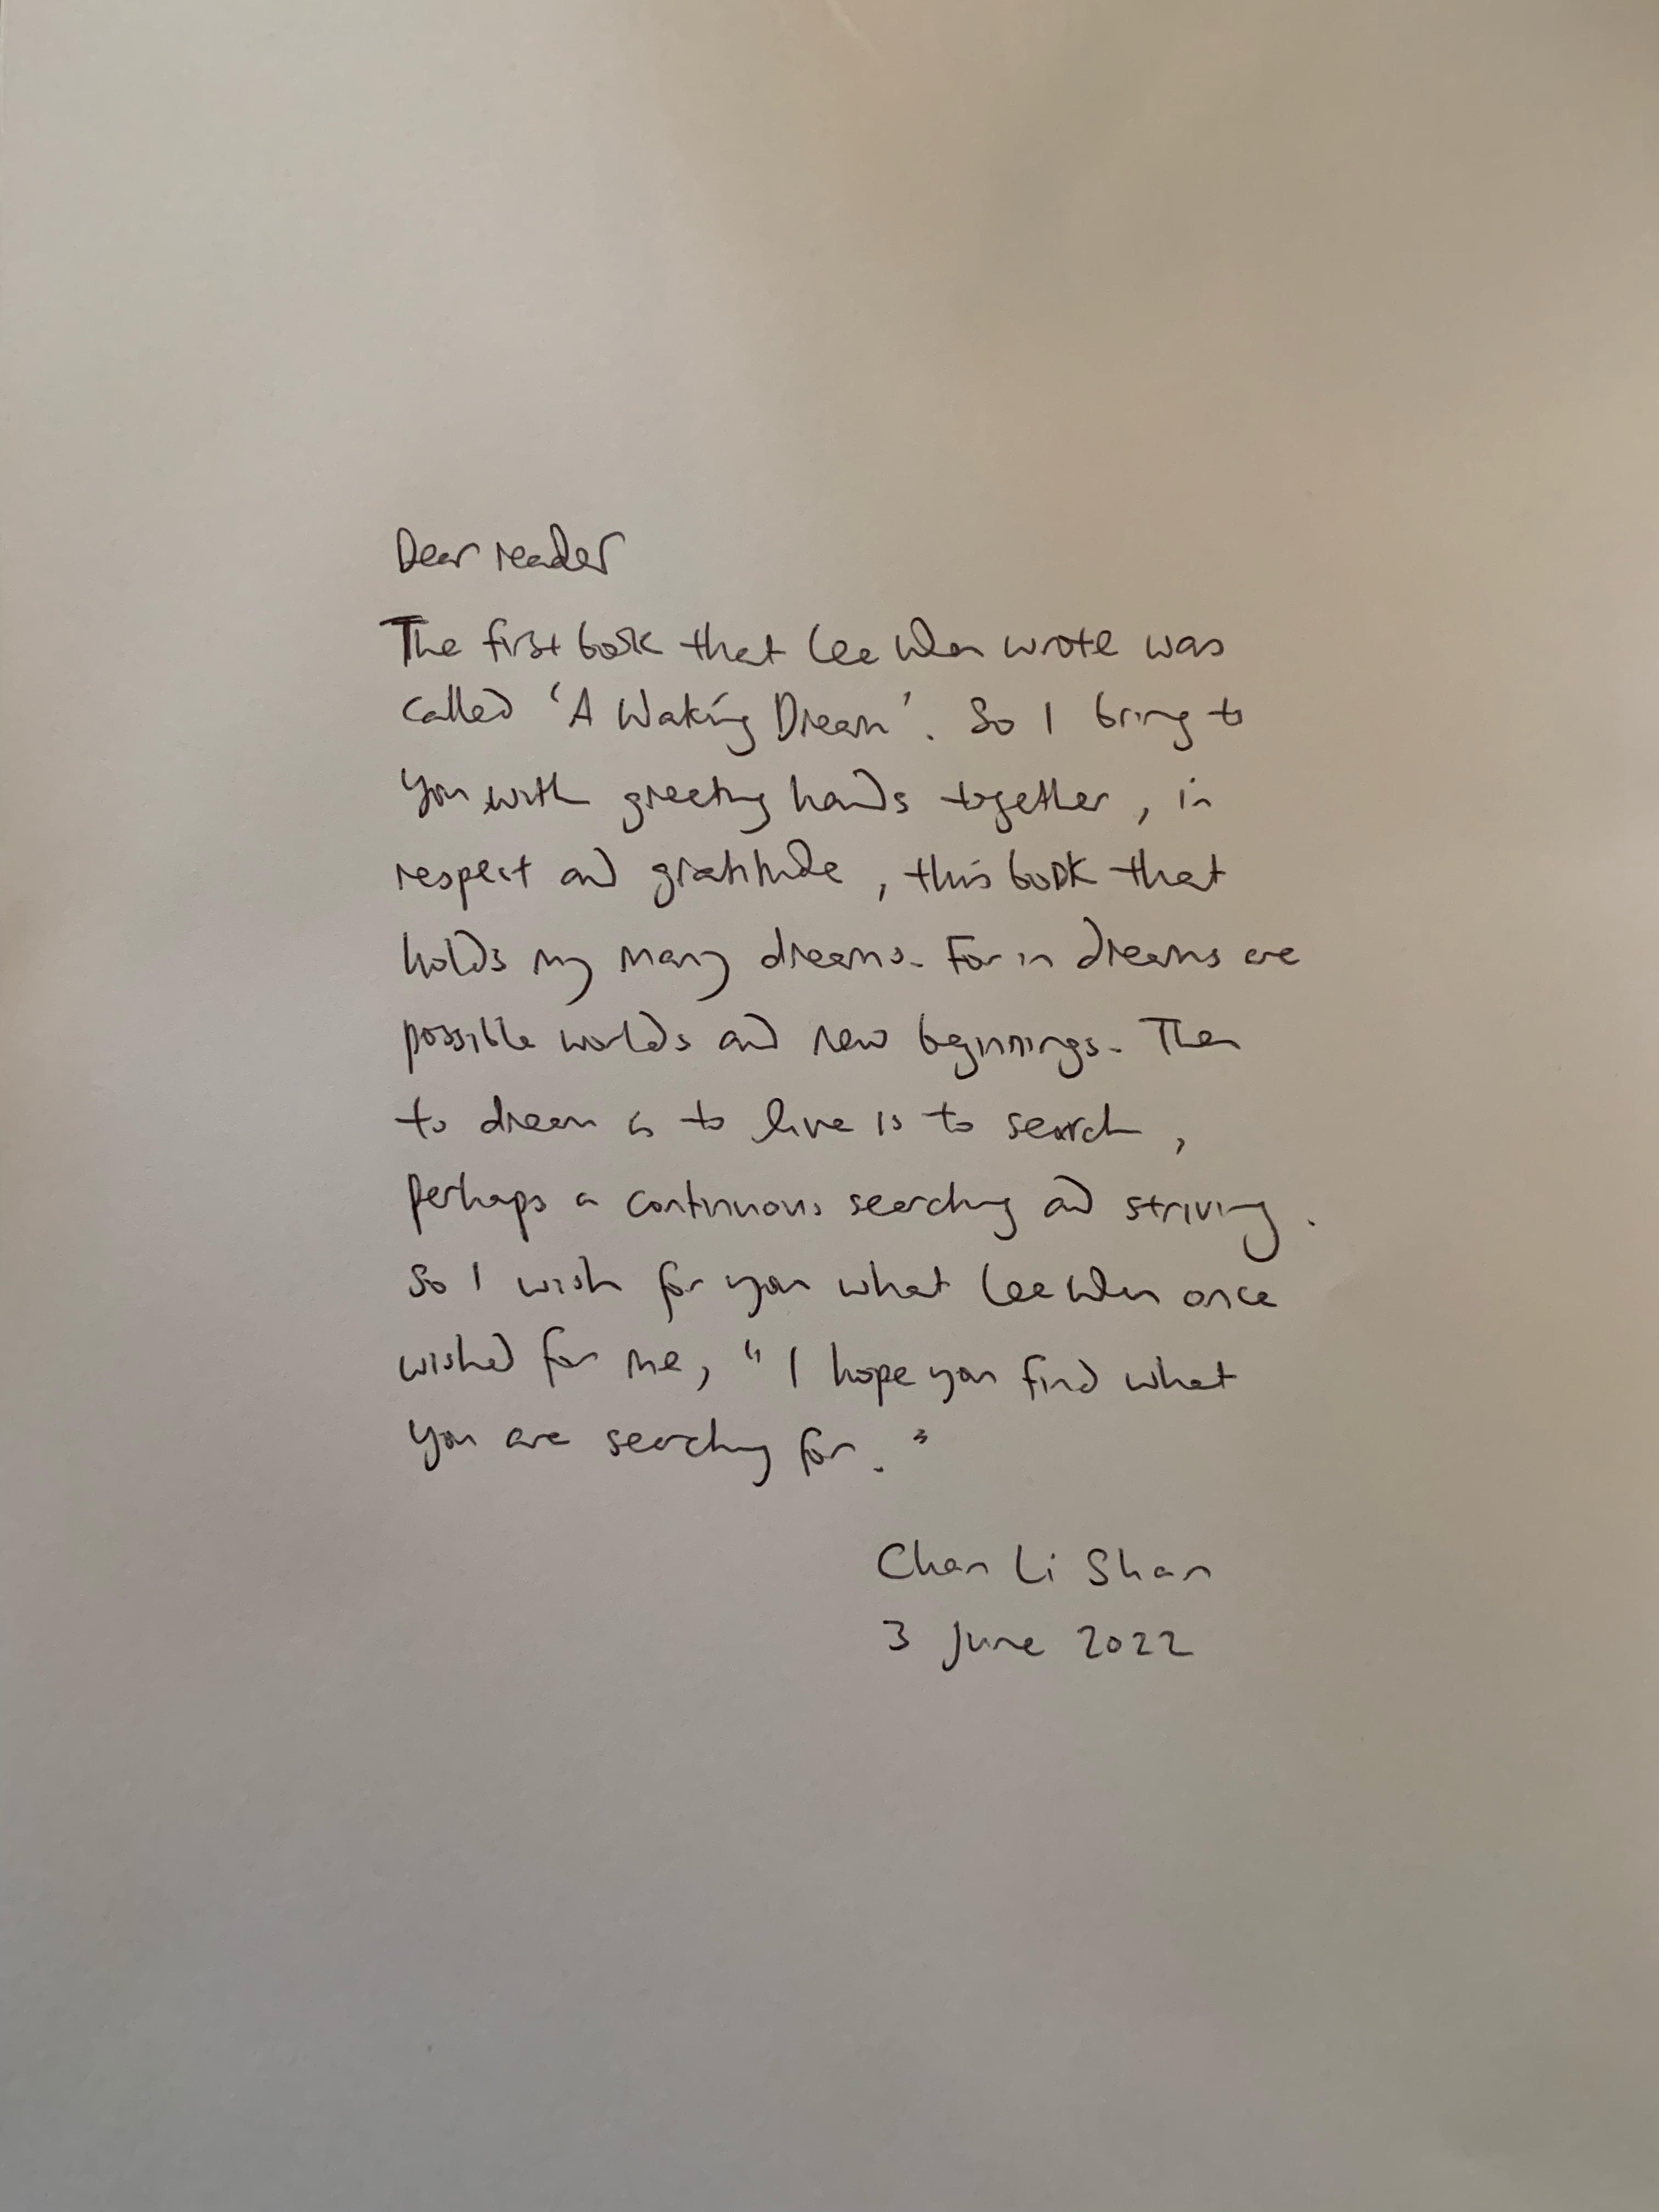 Dear reader
The first book that Lee Wen wrote was
called 'A Waking Dream'. So I bring to
you with greeting hands together, in
respect and gratitude, this book that
holds my many dreams. For in dreams are
possible worlds and new beginnings. Then
to dream is to live is to search,
perhaps a continuous searching and striving.
So I wish for you what Lee Wen once
wished for me, "I hope you find what
you are searching for."
Chan Li Shan
3 June 2022